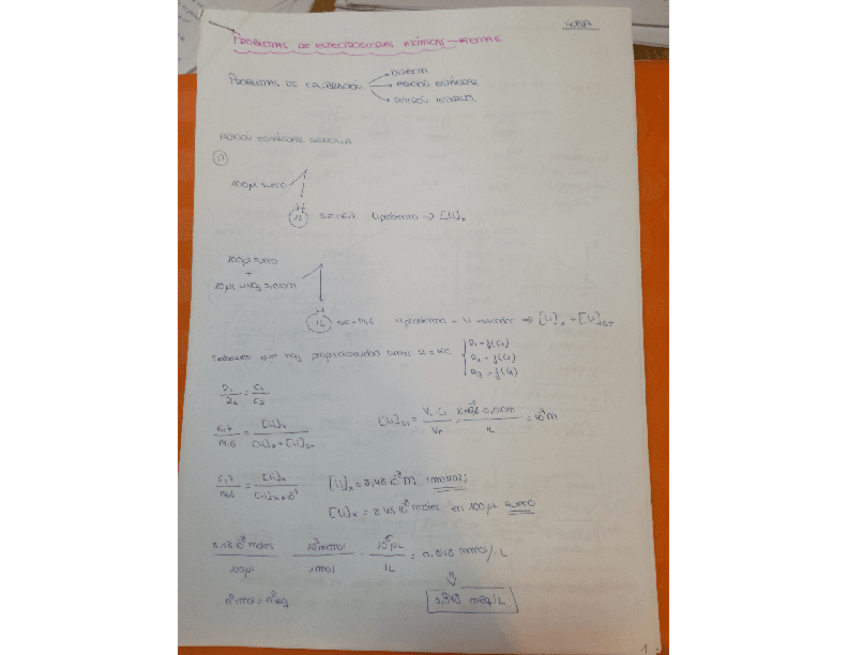 PROBLEMAS DE ESPECTROSCOPÍAS ATÓMICAS
PROBLEMAS DE CALIBRACIÓN
DIRECTA
ADICIÓN ESTÁNDAR
PATRÓN INTERNO
ADICIÓN ESTÁNDAR SENCILLA
100 µl suero
1L SE=6,7 Li problema ⇒ [Li]x
100 µl suero
+
10 µl LiNO3 0,010M
1L SE=14,6 Li problema + Li estándar ⇒ [Li]x + [Li]ST
Sabemos que hay proporcionalidad lineal R = KC
R1/R2 = C1/C2
6,7/14,6 = [Li]x/([Li]x+[Li]ST) [Li]ST = Vi·Ci/VF = 0,010M = 10^-7 M
6,7/14,6 = [Li]x/([Li]x+10^-7) [Li]x = 8,48·10^-8 M
[Li]x = 8,48·10^-8 moles en 100 µl suero
8,48·10^-8 moles/100µl · 10^3 mmol/1mol · 10^6 µL/1L = 0,848 mmol/L
nº mol = nº eq 0,848 meq/L
1